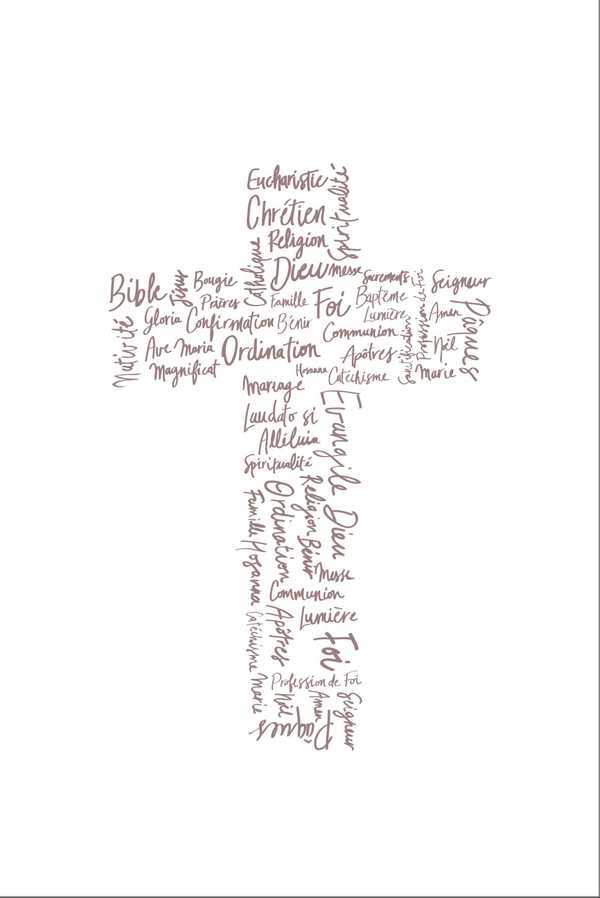 Eucharistie
Spiritualité
Chrétien
Religion
Catholique
Dieu
Messe
Sacrements
Profession de Foi
Seigneur
Bible
Jésus
Bougie
Prières
Famille
Foi
Baptême
Lumière
Amen
Pâques
Nativité
Gloria
Confirmation
Bénir
Communion
Sanctification
Noël
Ave Maria
Ordination
Apôtres
Magnificat
Hosanna
Catéchisme
Marie
Mariage
Evangile
Laudato si
Alléluia
Spiritualité
Religion
Dieu
Ordination
Famille
Bénir
Hosanna
Messe
Communion
Apôtres
Lumière
Catéchisme
Foi
Marie
Profession de Foi
Noël
Amen
Seigneur
Pâques